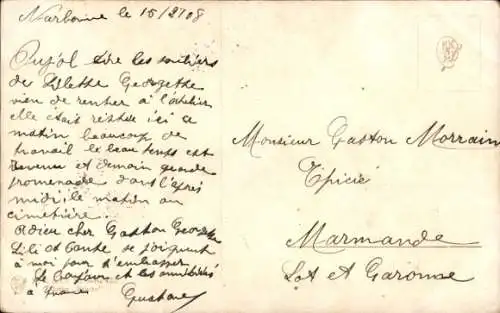 Narbonne le 15/2 08
Pujol tire les souliers
de Lilette Georgette
vien de rentrer à l'atelier
elle était restée ici ce
matin beaucoup de
travail le beau temps est
revenu et demain grande
promenade dans l'après
midi le matin au
cimetière.
Adieu cher Gaston Georgette
Lili et tante se joignent
à moi pour t'embrasser
le bonjour et les amitiés
à
Gustave
Monsieur Gaston Morrain
Epicié
Marmande
Lot et Garonne